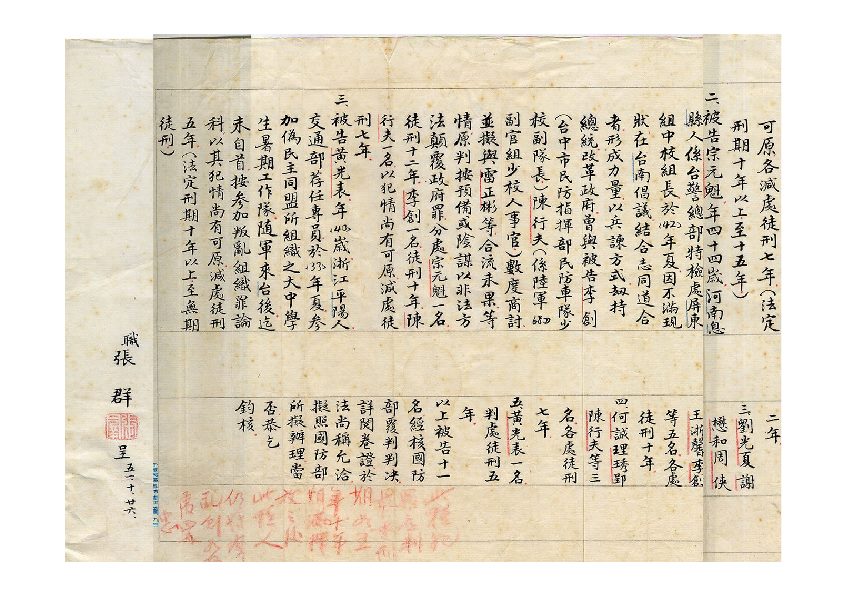 可原各減處徒刑七年(法定
刑期十年以上至十五年)
二、被告宗元魁年四十四歲河南息
縣人係台警總部特檢處屏東
組中校組長於42年夏因不滿現
狀在台南倡議結合志同道合
者形成力量以兵諫方式刼持
總統改革政府曾與被告李創
(台中市民防指揮部民防車隊少
校副隊長)陳行夫(係陸軍
副官組少校人事官)數度商討
並擬與雷正彬等合流未果等
情原判按預備或陰謀以非法方
法顛覆政府罪分處宗元魁一名
徒刑十二年李創一名徒刑十年陳
行夫一名以犯情尚有可原減處徒
刑七年
三、被告黃光表年43歲浙江平陽人
交通部荐任專員於35年夏參
加偽民主同盟所組織之大中學
生暑期工作隊隨軍來台後迄
未自首按參加叛亂組織罪論
科以其犯情尚有可原減處徒刑
五年(法定刑期十年以上至無期
徒刑)
二年
三劉光夏謝
懋和周俠
王浙馨李創
等五名各處
徒刑十年
四何誠理琇郢
陳行夫等三
名各處徒刑
七年
五黃光表一名
判處徒刑五
年
以上被告十一
名經核國防
部覆判判決
詳閱卷證於
法尚稱允洽
擬照國防部
所擬辦理當
否恭乞
鈞核
職
張群
呈
五六、十、廿六、